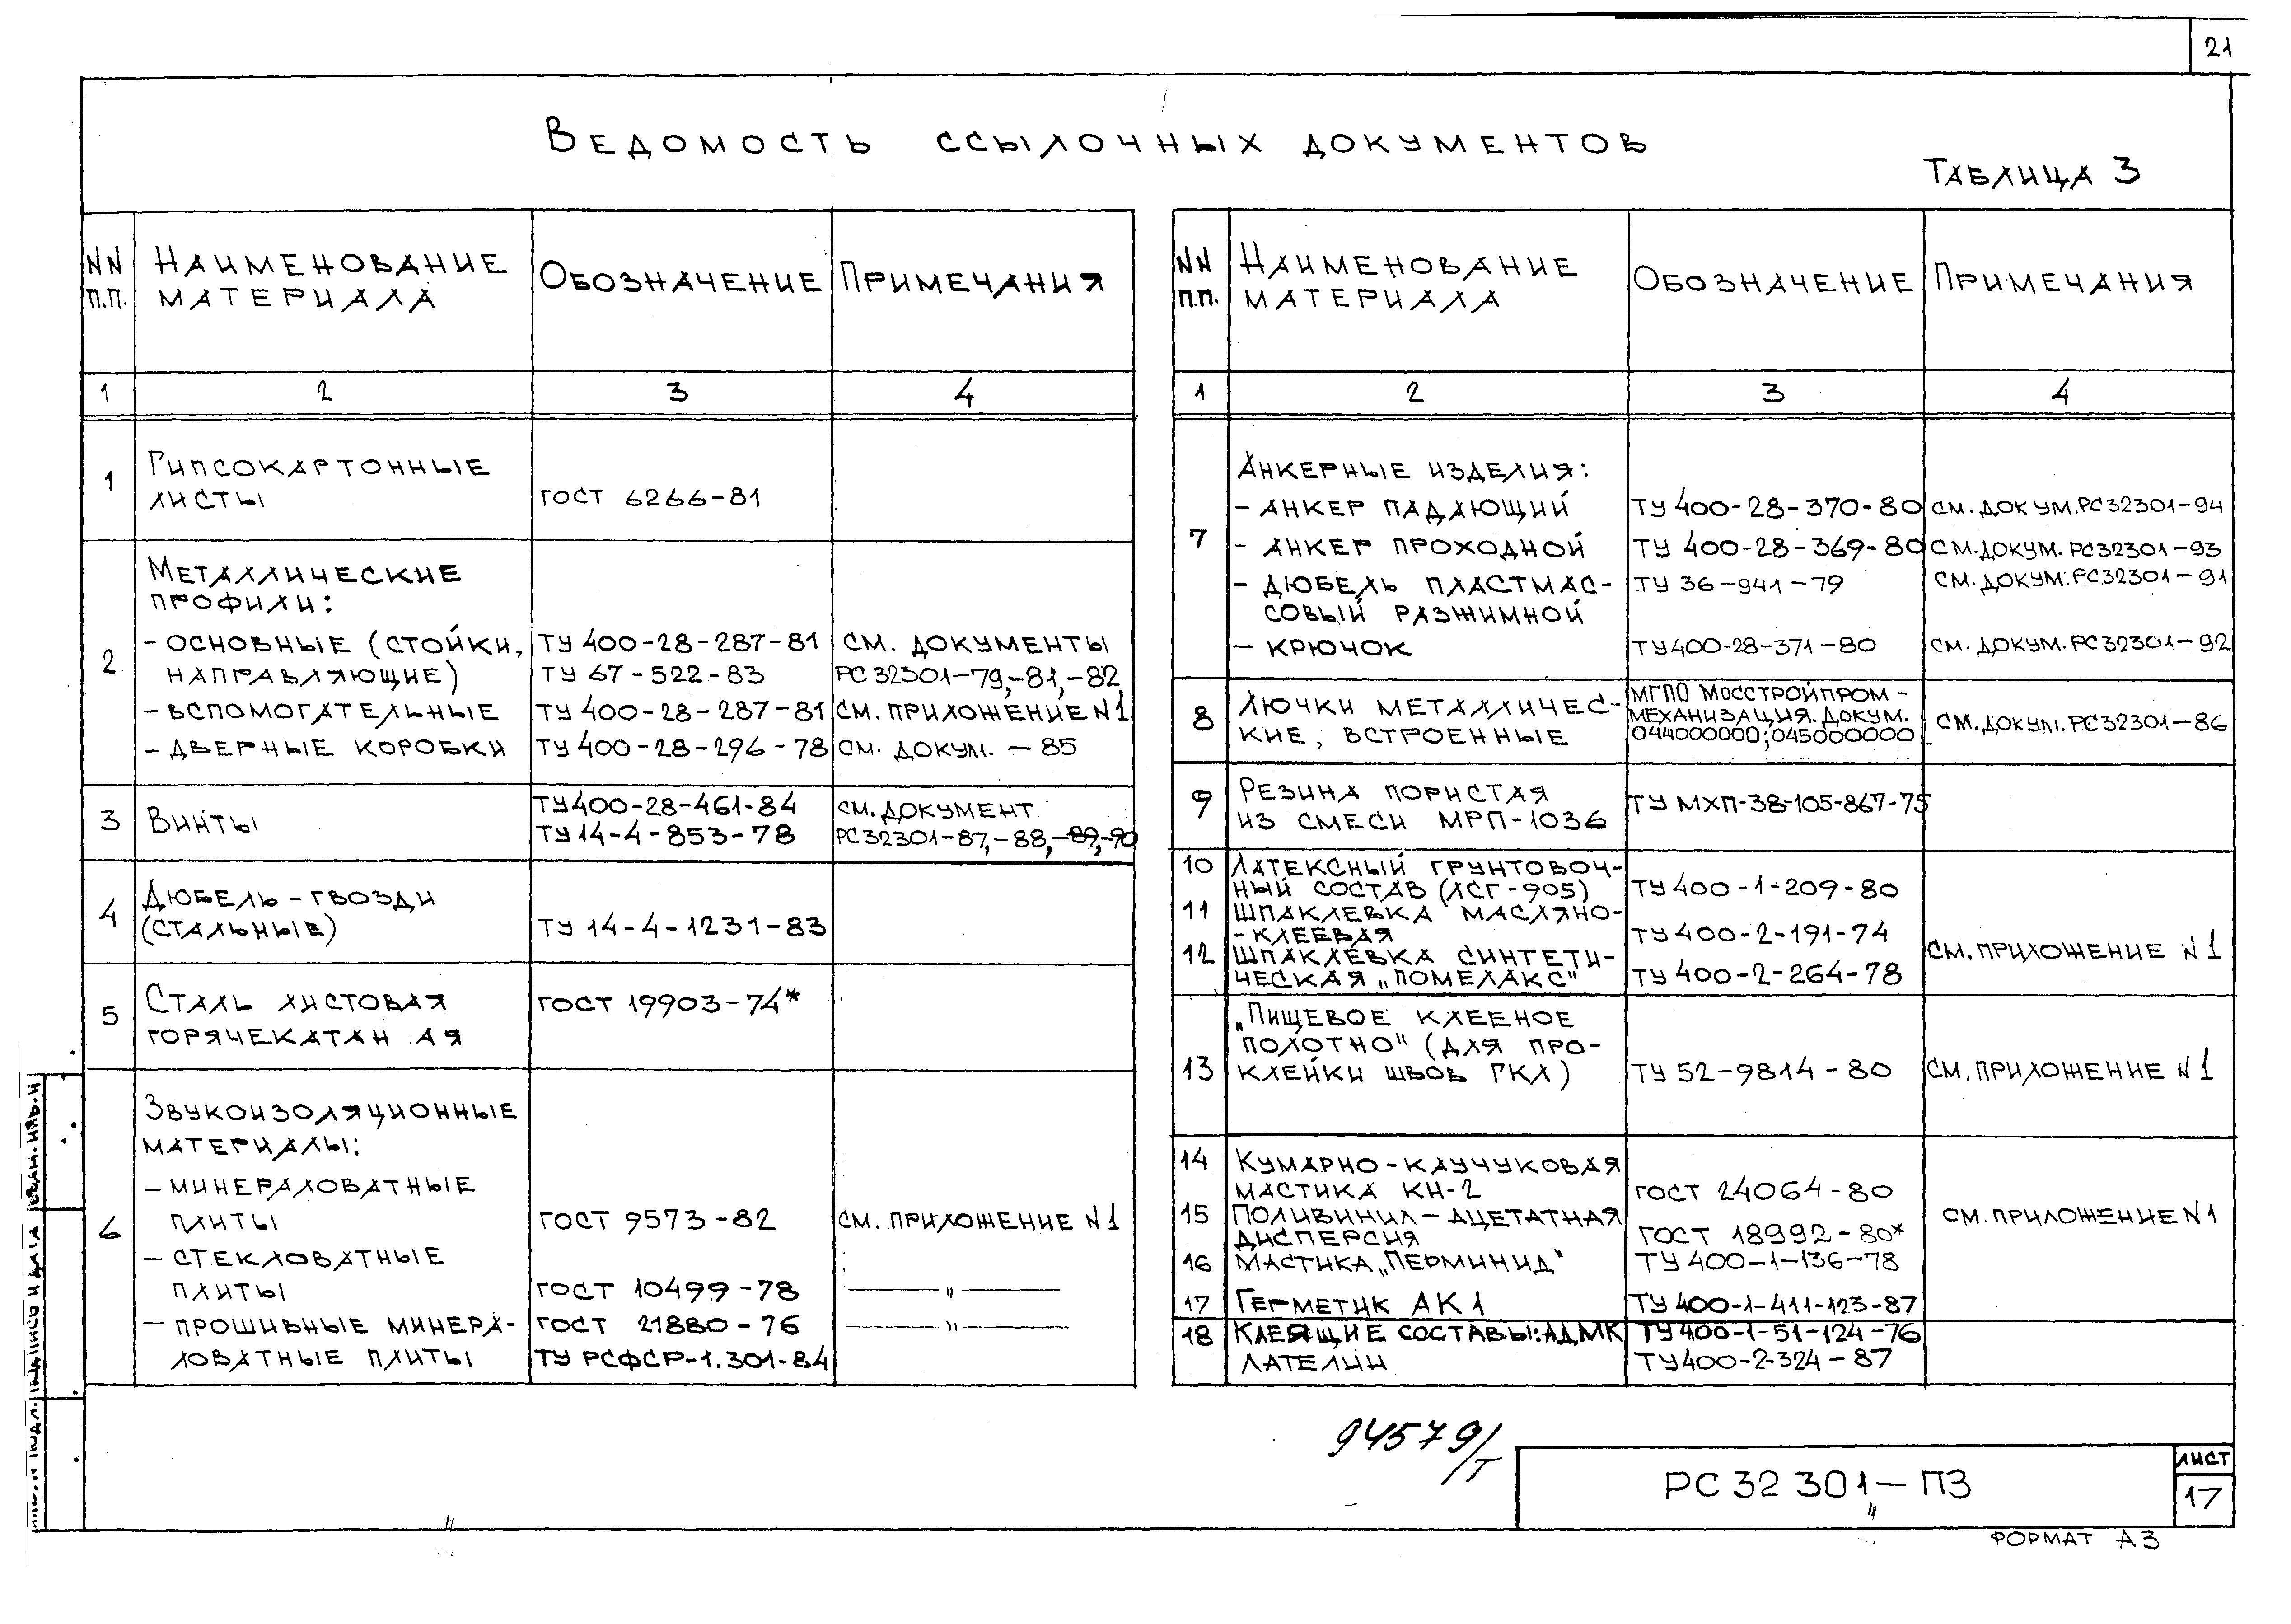 21
Ведомость ссылочных документов
Таблица 3
NN п.п. Наименование материала Обозначение Примечания
1 2 3 4
1 Гипсокартонные
листы ГОСТ 6266-81
Металлические
профили:
2 - основные (стойки, ТУ 400-28-287-81 см. документы
направляющие) ТУ 67-522-83 РС32301-79,-81,-82
- вспомогательные ТУ 400-28-287-81 см. приложение N1
- дверные коробки ТУ 400-28-296-78 см. докум. - 85
3 Винты ТУ 400-28-461-84 см. документ
ТУ 14-4-853-78 РС32301-87,-88,-89,-90
4 Дюбель-гвозди
(стальные) ТУ 14-4-1231-83
5 Сталь листовая ГОСТ 19903-74*
горячекатан ая
Звукоизоляционные
материалы:
- минераловатные
6 плиты ГОСТ 9573-82 см. приложение N1
- стекловатные
плиты ГОСТ 10499-78 — " —
- прошивные минера- ГОСТ 21880-76 — " —
ловатные плиты ТУ РСФСР-1.301-84
NN п.п. Наименование материала Обозначение Примечания
1 2 3 4
Анкерные изделия:
- анкер падающий ТУ 400-28-370-80 см. докум. РС32301-94
7 - анкер проходной ТУ 400-28-369-80 см. докум. РС32301-93
- дюбель пластмас- ТУ 36-941-79 см. докум. РС32301-91
совый разжимной
- крючок ТУ 400-28-371-80 см. докум. РС32301-92
8 Лючки металличес- МГПО Мосстройпром-
кие, встроенные механизация. Докум. см. докум. РС32301-86
044000000; 045000000
9 Резина пористая ТУ МХП-38-105-867-75
из смеси МРП-1036
10 Латексный грунтовоч-
ный состав (ЛСГ-905) ТУ 400-1-209-80
11 Шпаклевка масляно-
-клеевая ТУ 400-2-191-74
12 Шпаклевка синтети- см. приложение N1
ческая „Помелакс" ТУ 400-2-264-78
„Пищевое клееное
полотно" (для про-
13 клейки швов ГКЛ) ТУ 52-9814-80 см. приложение N1
14 Кумарно-каучуковая
мастика КН-2 ГОСТ 24064-80
15 Поливинил-ацетатная см. приложение N1
дисперсия ГОСТ 18992-80*
16 Мастика „Перминид" ТУ 400-1-136-78
17 Герметик АК1 ТУ 400-1-411-123-87
18 Клеящие составы: АДМК ТУ 400-1-51-124-76
Лателин ТУ 400-2-324-87
94579/т
РС 32 301-ПЗ
лист
17
формат А3